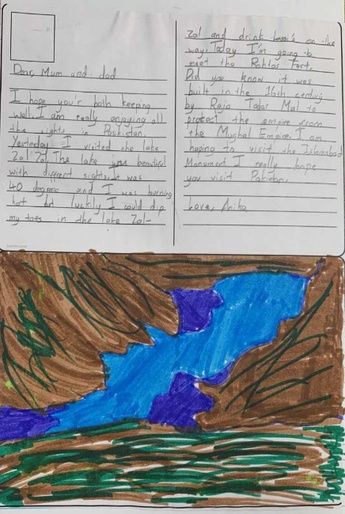 Dear, Mum and dad
I hope you'r both keeping
well. I am really enjoying all
the sights in Pakistan.
Yesterday I visited the lake
Zal Zol. The lake was beautiful
with different sights, it was
40 degree and I was burning
hot but luckily I could dip
my toes in the lake Zol-
Zal and drink beer's on the
way. Today I'm going to
meet the Rohtar Fort.
Did you know it was
built in the 16th century
by Raja Todar Mal to
protect the empire from
the Mughal Empire. I am
hoping to visit the Islamabad
Monument. I really hope
you visit Pakistan.
Love, Anika